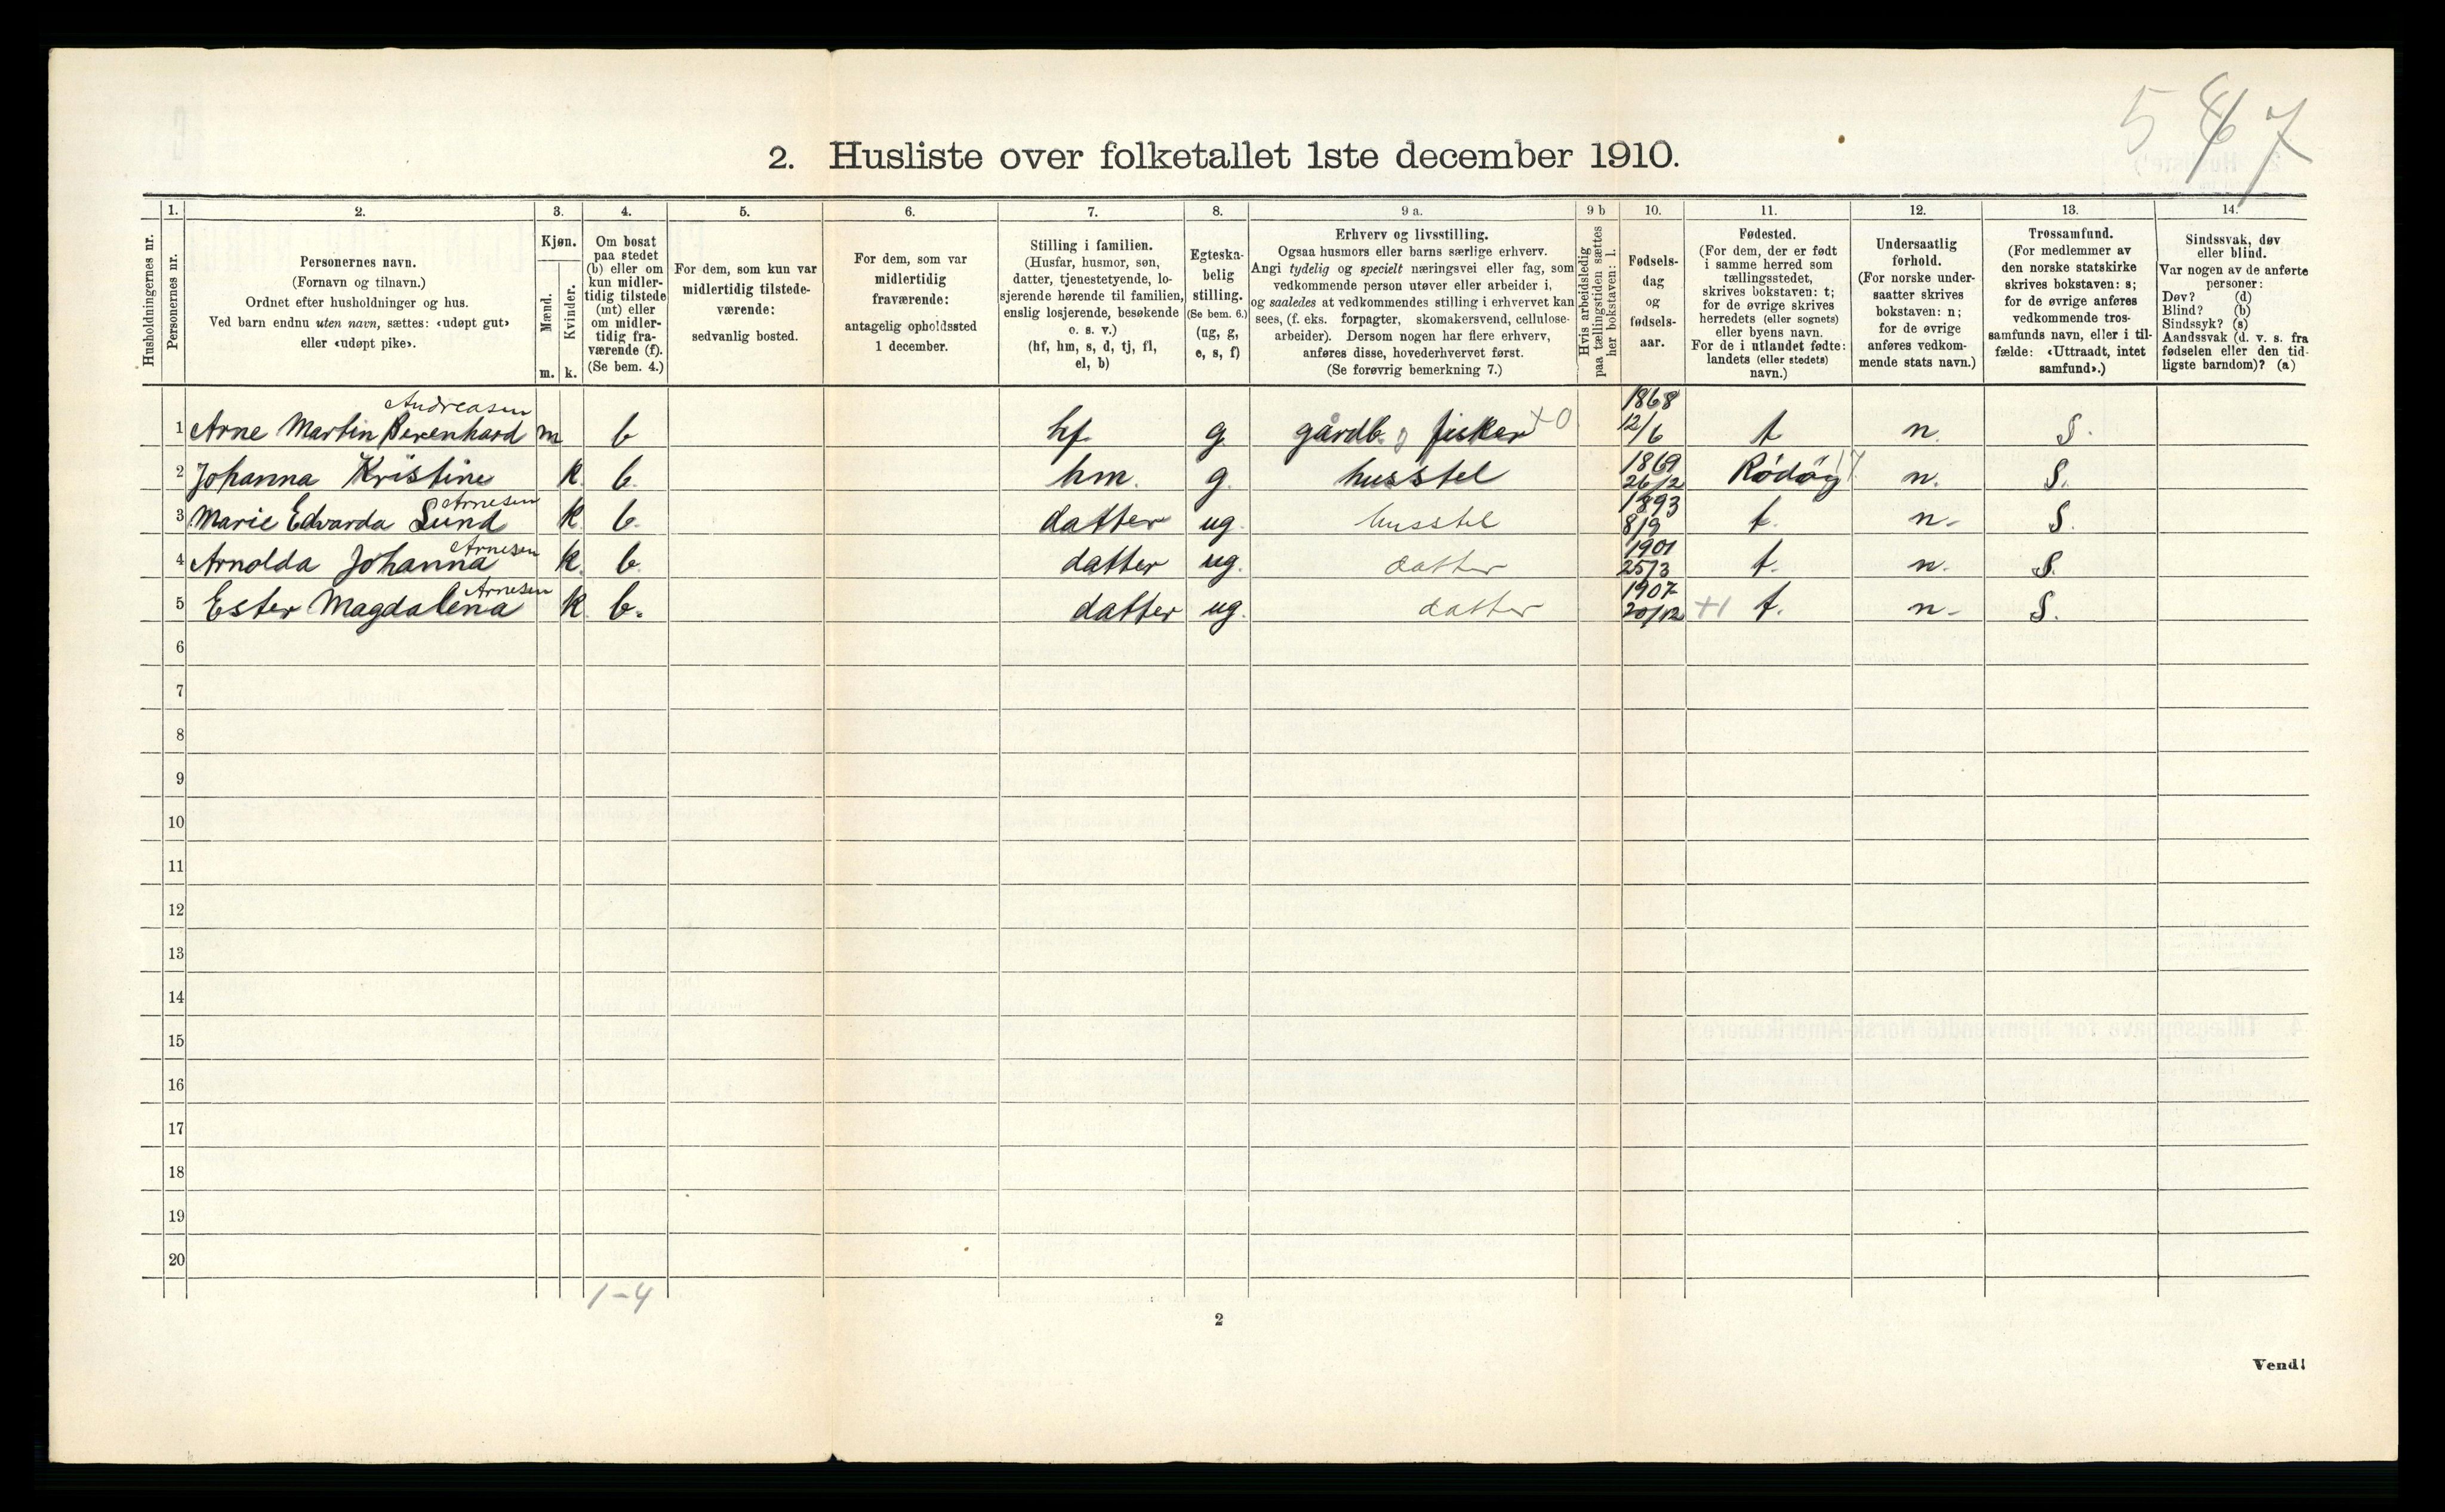 5 4 7
2. Husliste over folketallet 1ste december 1910.
1. 2. 3. 4. 5. 6. 7. 8. 9 a. 9 b 10. 11. 12. 13. 14.
Husholdningernes nr.
Personernes nr.
Personernes navn.
(Fornavn og tilnavn.)
Ordnet efter husholdninger og hus.
Ved barn endnu uten navn, sættes: «udøpt gut»
eller «udøpt pike».
Kjøn.
Mænd.
Kvinder.
m. k.
Om bosat
paa stedet
(b) eller om
kun midler-
tidig tilstede
(mt) eller
om midler-
tidig fra-
værende (f).
(Se bem. 4.)
For dem, som kun var
midlertidig tilstede-
værende:
sedvanlig bosted.
For dem, som var
midlertidig
fraværende:
antagelig opholdssted
1 december.
Stilling i familien.
(Husfar, husmor, søn,
datter, tjenestetyende, lo-
sjerende hørende til familien,
enslig losjerende, besøkende
o. s. v.)
(hf, hm, s, d, tj, fl,
el, b)
Egteska-
belig
stilling.
(Se bem. 6.)
(ug, g,
e, s, f)
Erhverv og livsstilling.
Ogsaa husmors eller barns særlige erhverv.
Angi tydelig og specielt næringsvei eller fag, som
vedkommende person utøver eller arbeider i,
og saaledes at vedkommendes stilling i erhvervet kan
sees, (f. eks. forpagter, skomakersvend, cellulose-
arbeider). Dersom nogen har flere erhverv,
anføres disse, hovederhvervet først.
(Se forøvrig bemerkning 7.)
Hvis arbeidsledig
paa tællingstiden sættes
her bokstaven: l.
Fødsels-
dag
og
fødsels-
aar.
Fødested.
(For dem, der er født
i samme herred som
tællingsstedet,
skrives bokstaven: t;
for de øvrige skrives
herredets (eller sognets)
eller byens navn.
For de i utlandet fødte:
landets (eller stedets)
navn.)
Undersaatlig
forhold.
(For norske under-
saatter skrives
bokstaven: n;
for de øvrige
anføres vedkom-
mende stats navn.)
Trossamfund.
(For medlemmer av
den norske statskirke
skrives bokstaven: s;
for de øvrige anføres
vedkommende tros-
samfunds navn, eller i til-
fælde: «Uttraadt, intet
samfund».)
Sindssvak, døv
eller blind.
Var nogen av de anførte
personer:
Døv? (d)
Blind? (b)
Sindssyk? (s)
Aandssvak (d. v. s. fra
fødselen eller den tid-
ligste barndom)? (a)
Andreasen 1868
1 Arne Martin Berenhard m b hf. g. gårdb. og fisker +0 12/6 t n. S.
1869
2 Johanna Kristine k. b. hm. g. husstel 26/2 Rödöy 17 n. S.
Arnesen 1893
3 Marie Edvarda Lund k. b. datter ug. husstel 8/9 t. n. S.
Arnesen 1901
4 Arnolda Johanna k. b. datter ug. datter 25/3 t. n. S.
Arnesen 1907
5 Ester Magdalena k b. datter ug. datter 20/12 +1 t. n. S.
6
7
8
9
10
11
12
13
14
15
16
17
18
19
20
1-4
2
Vend!